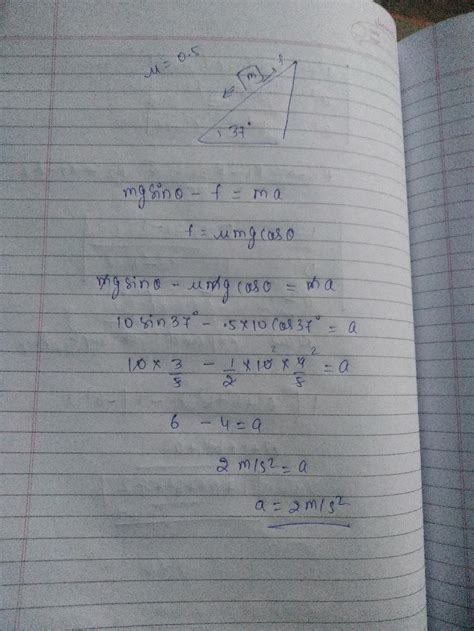 μ = 0.5
m
f
37°
mgsinθ - f = ma
f = μmgcosθ
mgsinθ - μmgcosθ = ma
10 sin37° - .5×10cos37° = a
10 × 3/5 - 1/2 × 10 × 4/5 = a
6 - 4 = a
2 m/s² = a
a = 2m/s²